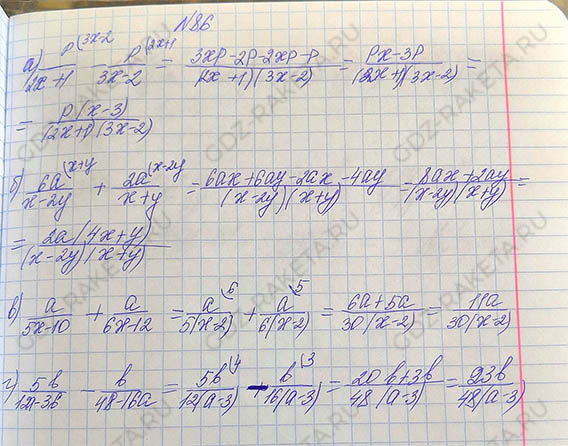 №86
а) p(3x-2 / 2x+1 - p(2x+1 / 3x-2 = 3xp-2p-2xp-p / (2x+1)(3x-2) = px-3p / (2x+1)(3x-2) =
= p(x-3) / (2x+1)(3x-2)
б) 6a(x+y / x-2y + 2a(x-2y / x+y = 6ax+6ay-2ax-4ay / (x-2y)(x+y) = 8ax+2ay / (x-2y)(x+y) =
= 2a(4x+y) / (x-2y)(x+y)
в) a / 5x-10 + a / 6x-12 = a(6 / 5(x-2) + a(5 / 6(x-2) = 6a+5a / 30(x-2) = 11a / 30(x-2)
г) 5b / 12a-36 - b / 48-16a = 5b(4 / 12(a-3) + b(3 / 16(a-3) = 20b+3b / 48(a-3) = 23b / 48(a-3)
GDZ-RAKETA.RU